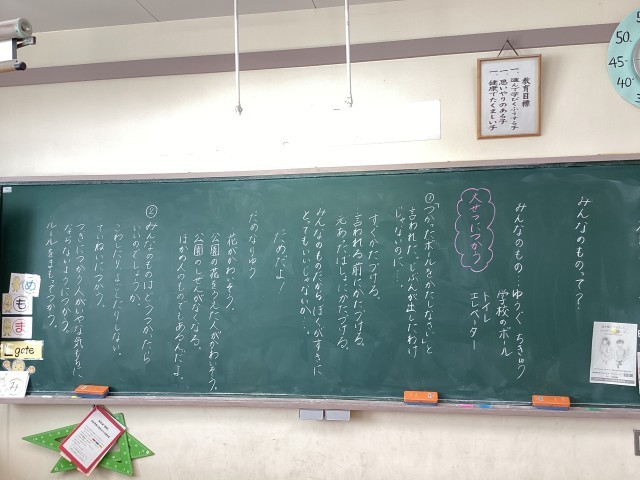 みんなのものって??
みんなのもの…ゆうぐ ちきゅう
学校のボール
トイレ
エレベーター
大せつにつかう
①「つかったボールをかたしなさい」と
言われた。じぶんが出したわけ
じゃないのに…
すぐかたづける。
言われる前にかたづける。
元あったばしょにかたづける。
みんなのものだからぼくがすきに
とってもいいじゃないか…
だめだよ!
だめなりゆう
花がかわいそう。
公園の花をうえた人がかわいそう。
公園のしぜんがなくなる。
ほかの人のものでもあるんだよ。
②みんなのものはどうつかったら
いいのでしょうか。
こわしたり、よごしたりしない。
ていねいにつかう。
つぎにつかう人がいやな気もちに
ならないようにつかう。
ルールをまもってつかう。
教育目標
一、進んで学びくふうする子
一、思いやりのある子
一、健康でたくましい子
50
45
40
め
も
ま